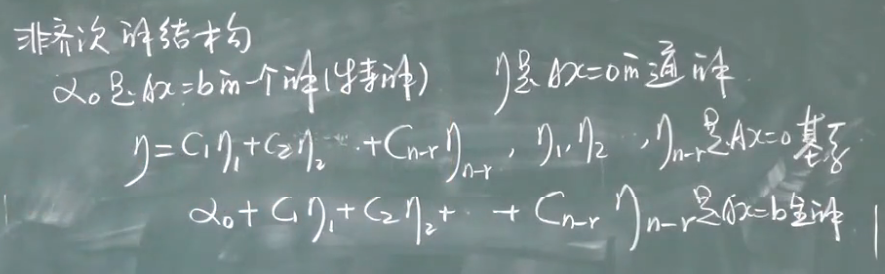 非齐次解结构
α₀是Ax=b的一个解(特解) η是Ax=0的通解.
η=C₁η₁+C₂η₂…+Cₙ₋ᵣηₙ₋ᵣ, η₁,η₂…,ηₙ₋ᵣ是Ax=0基系
α₀+C₁η₁+C₂η₂+…+Cₙ₋ᵣηₙ₋ᵣ是Ax=b全解